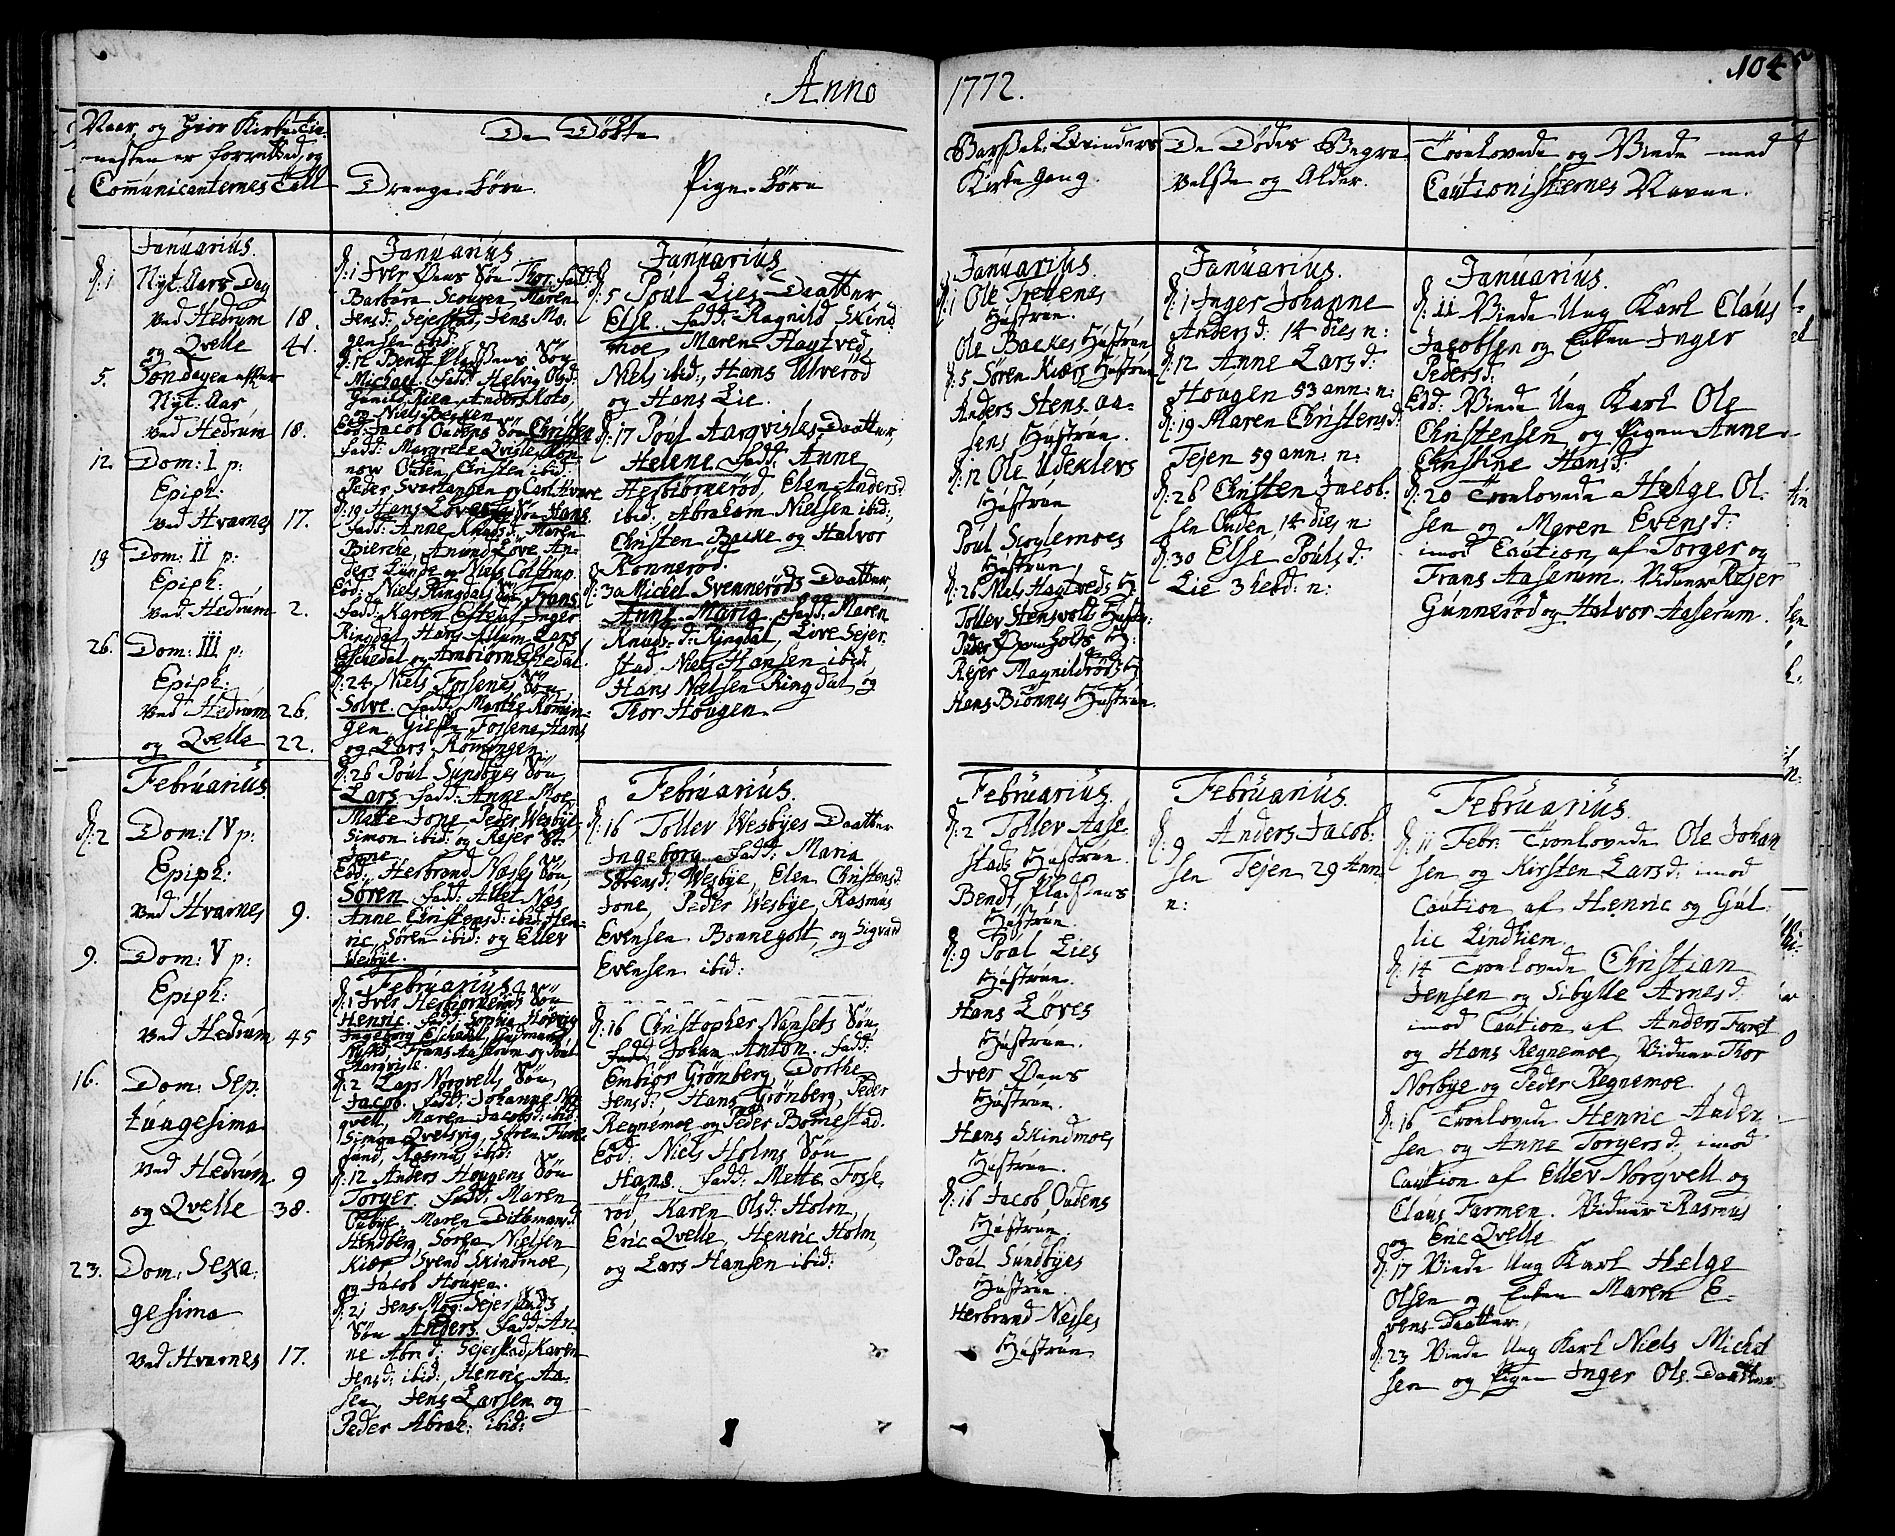 Anno 1772.
104
Naar og hvor Kirketie-
nesten er forretted, og
Comunicanternes Tall
De Døbte
Drenge-Børn
Pige-Børn
Barsel-Qvinders
Kirkegang.
De Dødes Begra-
velsse og Alder.
Troelovede og Viede med
Cautionisternes Navne.
Januarius.
d: 1 Nyt-Aars Dag
ved Hedrum 18.
og Qvelle 41.
5. Søndagen efter
Nyt-Aar
ved Hedrum 18.
12. Dom: I p:
Epiph:
ved Hvarnes 17.
19 Dom: II p:
Epiph:
ved Hedrum 2.
26. Dom: III p:
Epiph:
ved Hedrum 26.
og Qvelle 22.
Februarius
d: 2 Dom: IV p:
Epiph:
ved Hvarnes 9.
9. Dom: V p:
Epiph:
ved Hedrum 45
16. Dom: Sep-
tuagesima
ved Hedrum 9
og Qvelle 38.
23. Dom: Sexa-
gesima
ved Hvarnes 17.
Januarius
d: 1 Iver Øens Søn Thor. fadd:
Barbara Scougen, Maren
Jensd: Sejerstad, Jens Mo-
gensen ibid:
d: 12 Bendt Pladsens Søn
Michael. fadd: Helvig Olsd:
Gunild Anders
og Niels Becken
Eod: Jacob Oudens Søn Christen
fadd: Margrete Qvisle,
Ouden, Christen ibid:
Peder Svartangen og Carl Hvarre
d: 19 Hans Løves Søn Hans.
fadd: Anne Knudsd: Maren
Bierche, Anund Løve, An-
ders Lunde og Niels Coltrup.
Eod: Niels Ringdals Søn Frans
fadd: Karen Eftedal, Inger
Ringdal, Hans Allum, Lars
Eftedal og Ambiørn Eftedal.
d: 24 Niels Forsenes Søn
Solve. fadd: Marthe Romin-
gen, Forsene, Hans
og Lars Romingen.
d: 26 Poul Sundbyes Søn
Lars. fadd: Anne Moe,
Mette Jone, Peder Wesbye,
Simon ibid: og Rejer
Jone
Eod: Herbrand Næsses Søn
Søren fadd: Allet Næs
Anne Christensd: ibid: Hen-
ric, Søren ibid: og Ellev
Wesbye.
Februarius
d: 1 Iver Herbiørnerøds Søn
Henric. fadd: Sophia
Ingeborg Eschedal, Gudmund
Frans Aasrum og Poul
Aargvisle.
d: 2 Lars Norqvells Søn,
Jacob. fadd: Johanne No-
qvell, Maren Jacobsd: ibid:
Simon Qvelsvig, Søren Fure-
sund, Rasmus ibid:
d: 12 Anders Hougens Søn
Torger. fadd: Maren
Oubye, Maren Ditlemand:
Hindberg, Søren Nielsen
Kiær, Svend Skindmoe,
og Jacob Hougen.
d: 21 Jens Mog: Sejerstads
Søn Anders. fadd: An-
ne Abrd: Sejerstad, Karen
Jensd: ibid:, Henric Aa-
sen, Jens Larsen og
Peder Abrah: ibid:
Januarius
d: 5 Poul Lies Daatter
Else. fadd: Ragnild Skind-
moe, Maren Hagtved,
Niels ibid:, Hans Ulverød
og Hans Lie.
d: 17 Poul Aargvisles Daatter,
Helene. fadd: Anne
Herbiørnerød, Elen Andersd:
ibid:, Abraham Nielsen ibid:,
Christen Backe og Halvor
Rønnerød.
d: 30 Michel Svennerøds Daatter
Anne Maria. fadd: Maren
Knudsd: Ringdal, Live Sejer-
stad, Niels Hansen ibid:,
Hans Nielsen Ringdal, og
Thor Hougen.
Februarius.
d: 16 Tollev Wesbyes Daatter
Ingeborg. fadd: Maria
Sørensd: Wesbye, Elen Christensd:
Jone, Peder Wesbye, Rasmus
Evensen Bonnegolt, og Sigvard
Evensen ibid:
d: 16 Christopher Nansets Søn
Johan Anton. fadd:
Embiør Grønberg, Dorthe
Jensd:, Hans Grønberg, Peder
Regnemoe og Peder Bornestad.
Eod: Niels Holms Søn
Hans. fadd: Mette Forse-
rød Karen Olsd: Holm,
Eric Qvelle, Henric Holm,
og Lars Hansen ibid:
Januarius.
d: 1 Ole Tvetenes
Hustrue.
Ole Backes Hustrue
d: 5 Søren Kiærs Hustrue
Anders Stens-aa-
sens Hustrue.
d: 12 Ole Udeklevs
Hustrue
Poul Scoglemoes
Hustrue,
d: 26 Niels Hagtveds H:
Tollev Stensvold Hustr:
Peder holts H:
Rejer Magnildrøds H:
Hans Biønnes Hustrue.
Februarius.
d: 2 Tollev Aasse-
stads Hustrue.
Bendt Pladsens
Hustrue.
d: 9 Poul Lies
Hustrue.
Hans Løves
Hustrue.
Iver Øens
Hustrue.
Hans Skindmoes
Hustrue.
d: 16 Jacob Oudens
Hustrue
Poul Sundbyes
Hustrue.
Herbrand Næsses
Hustrue.
Januarius.
d: 1 Inger Johanne
Andersd: 14 dies n:
d: 12 Anne Larsd:
Hougen 53 ann: n:
d: 19 Maren Christensd:
Tejen 59 ann: n:
d: 26 Christen Jacob-
sen Ouden, 14 dies n:
d: 30 Else Poulsd:
Lie 3 hebd: n:
Februarius.
d: 9 Anders Jacob-
sen Tejen 29 Ann:
n:
Januarius.
d: 11 Viede Ung Karl Claus
Jacobsen og Enken Inger
Pedersd:
Eod: Viede Ung Karl Ole
Christensen og Pigen Anne
Christine Hansd:
d: 20 Troelovede Helge Ol-
sen og Maren Evensd:
imod Caution af Torger og
Frans Aaserum. Vidner Rejer
Gunnerød og Halvor Aaserum.
Februarius.
d: 11 Febr: Troelovede Ole Johan-
sen og Kirsten Larsd: imod
Caution af Henric og Gul-
lic Lindhiem.
d: 14 Troelovede Christian
Jensen og Sibylle Arnesd:
imod Caution af Anders Furst
og Hans Regnemoe, Vidner Thor
Norbye og Peder Regnemoe
d: 16 Troelovede Henric Ander-
sen og Anne Torgersd: imod
Caution af Ellev Norqvell og
Claus Farmen. Vidner Rasmus
og Eric Qvelle
d: 17 Viede Ung Karl Helge
Olsen og Enken Maren E-
vens-Daatter,
d: 23 Viede Ung Karl Niels Michel-
sen og Pigen Inger Ols-Daatter